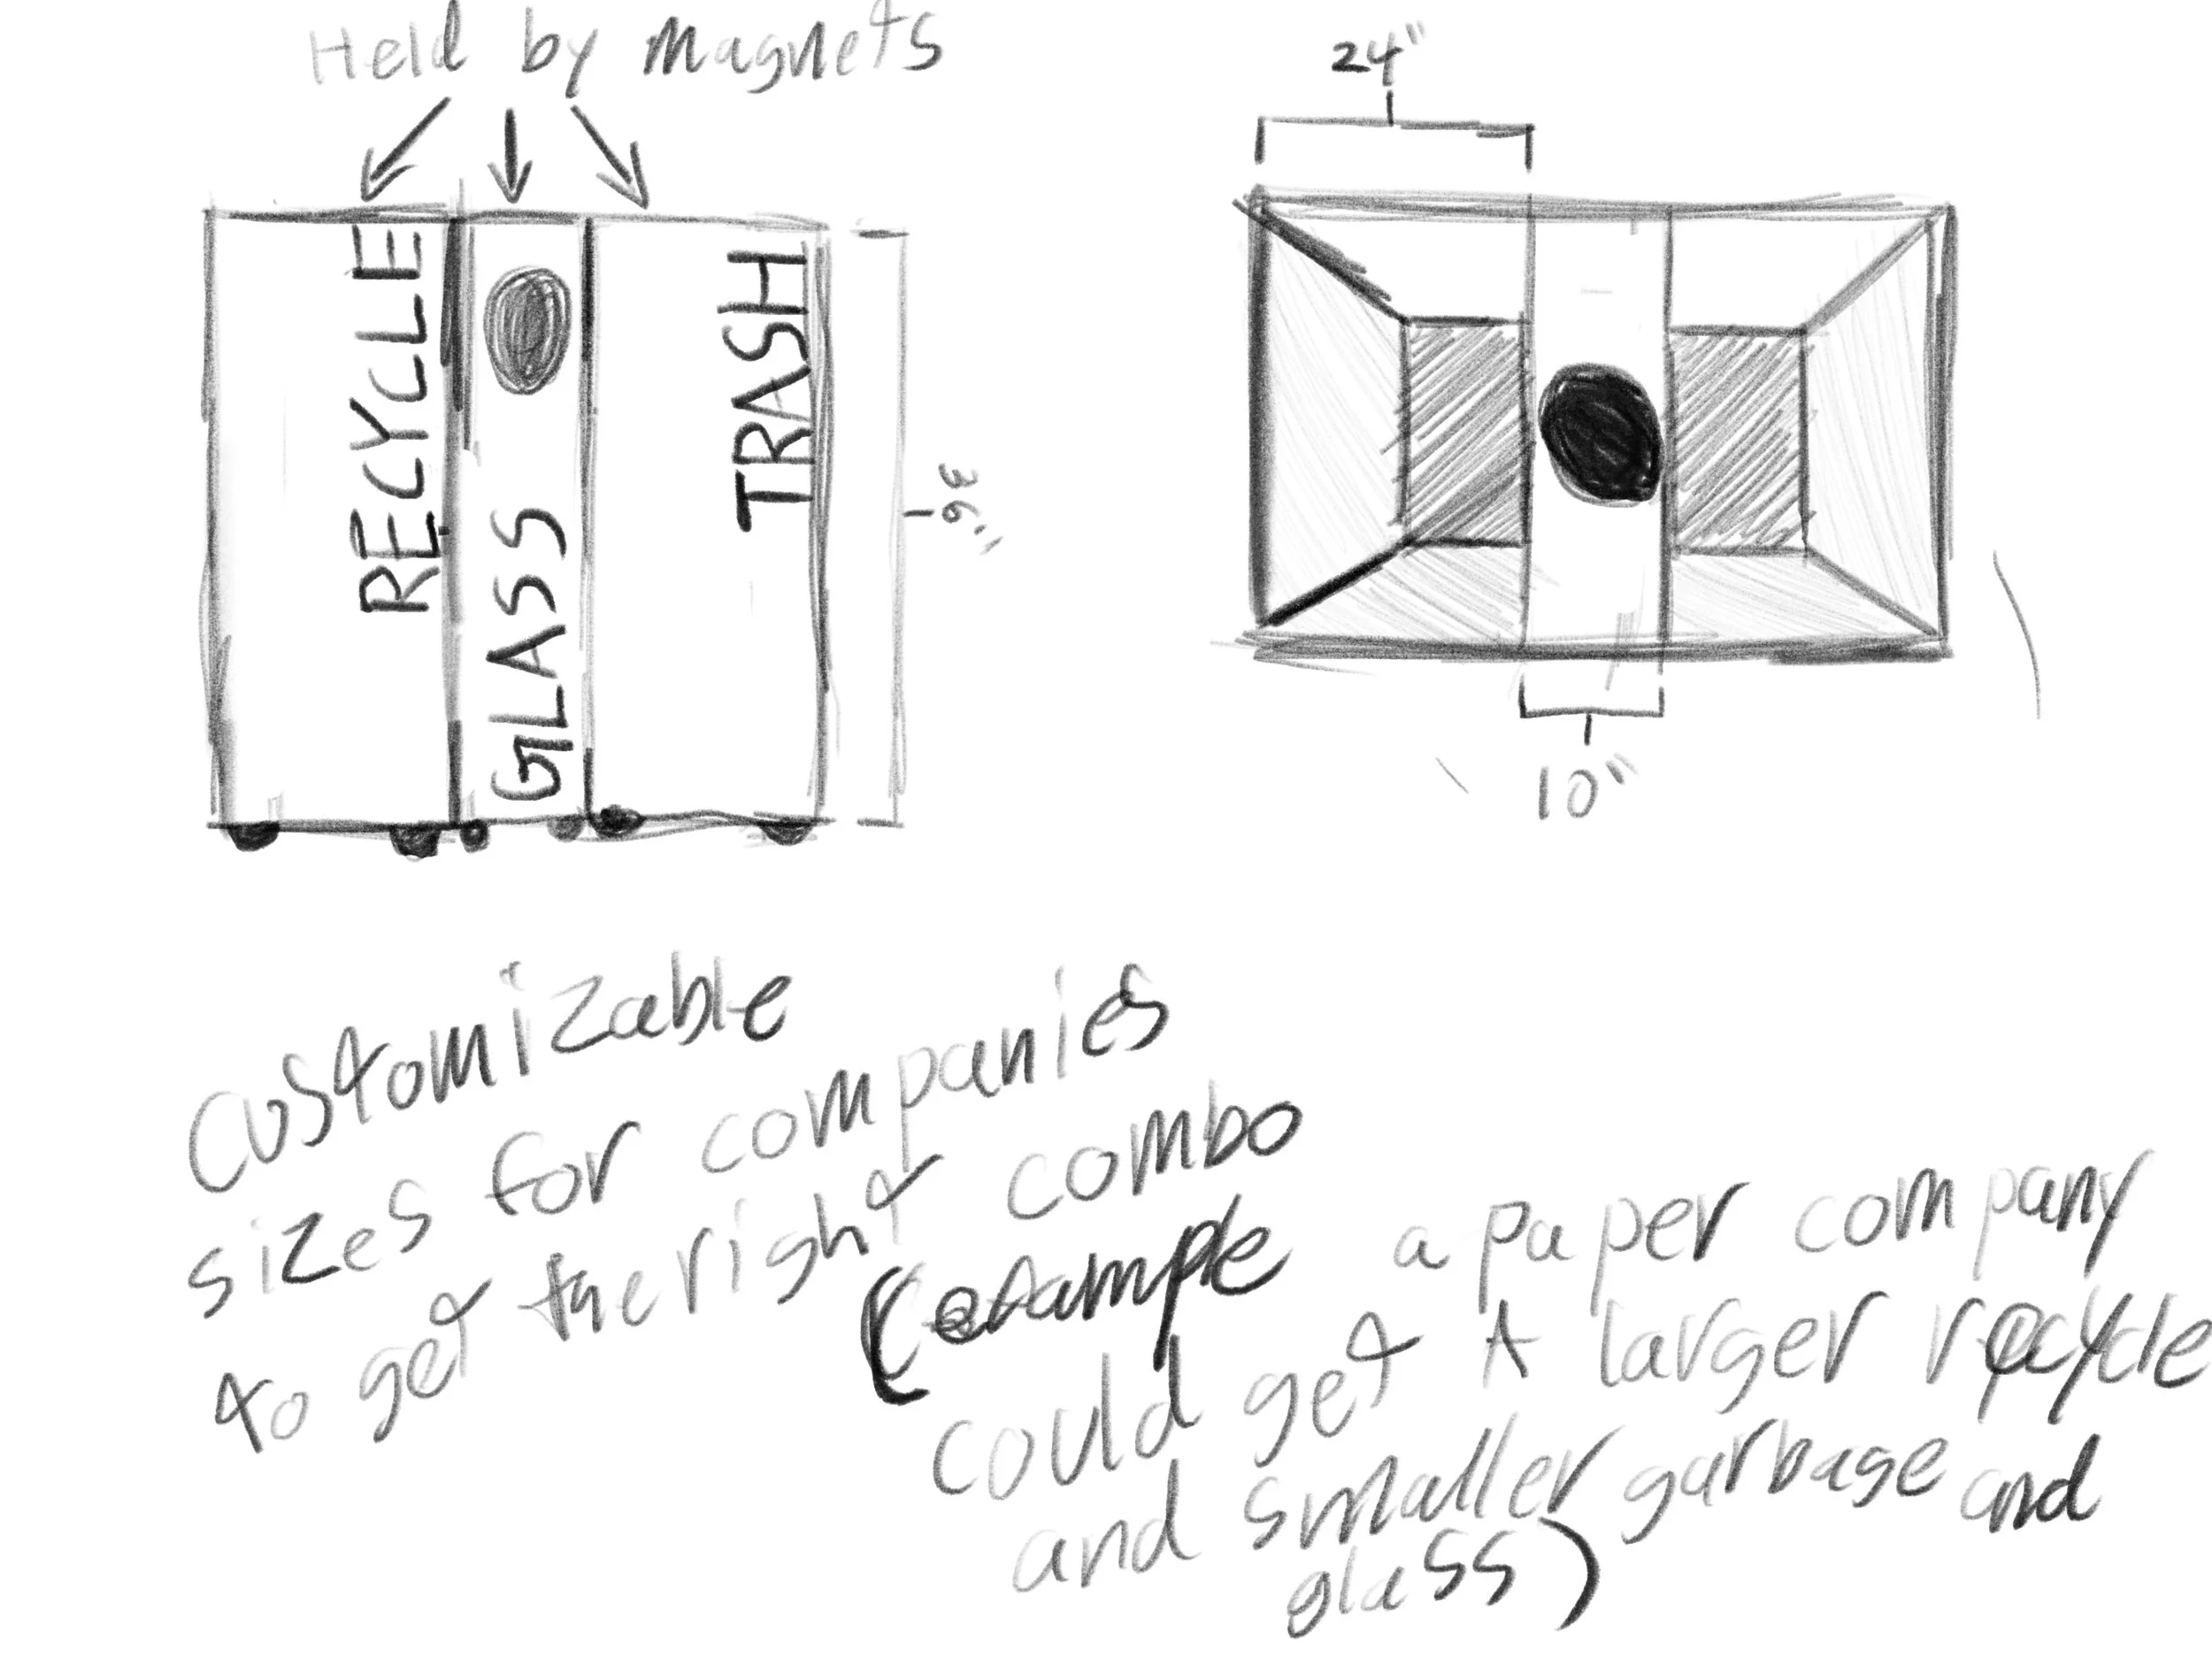 Held by magnets
24"
RECYCLE
GLASS
TRASH
36"
10"
Customizable
sizes for companies
to get the right combo
(example a paper company
could get A larger recycle
and smaller garbage and
glass)